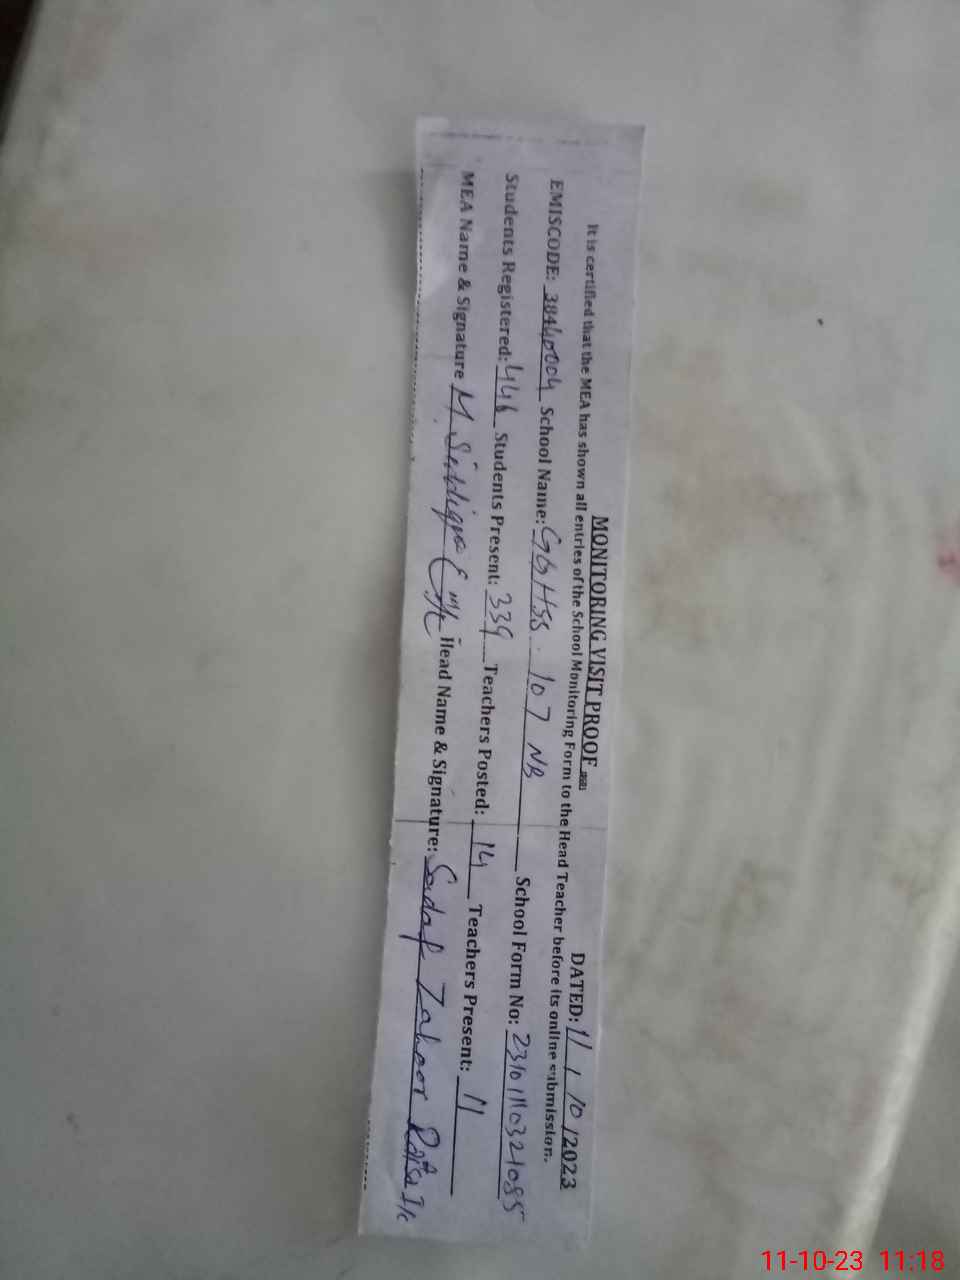 MONITORING VISIT PROOF DATED: 11 / 10 /2023
It is certified that the MEA has shown all entries of the School Monitoring Form to the Head Teacher before its online submission.
EMISCODE: 38440004 School Name: GGHSS. 107 NB School Form No: 23101110321085
Students Registered: 446 Students Present: 339 Teachers Posted: 14 Teachers Present: 11
MEA Name & Signature M. Siddique Head Name & Signature: Sadaf Zahoor I/c
11-10-23 11:18